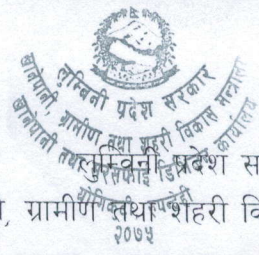 लुम्बिनी प्रदेश सरकार
खानेपानी, ग्रामीण तथा शहरी विकास मन्त्रालय
खानेपानी तथा सरसफाई डिभिजन कार्यालय
२०७५
लुम्बिनी प्रदेश स
, ग्रामीण तथा शहरी वि